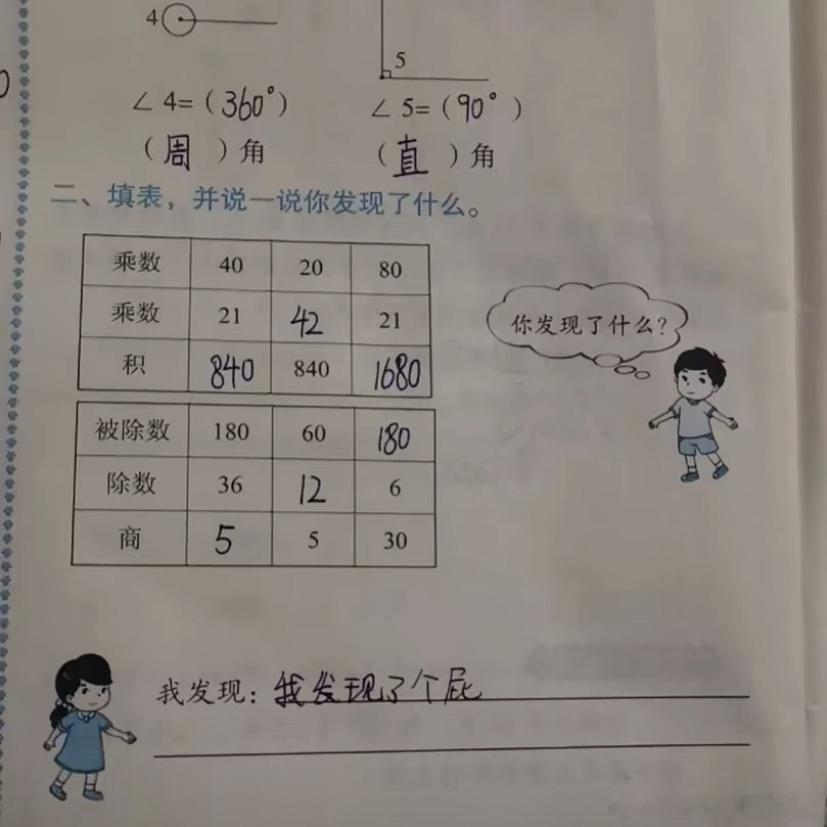 4
5
∠ 4=（360°） ∠ 5=（90°）
（周）角 （直）角
二、填表，并说一说你发现了什么。
乘数 40 20 80
乘数 21 42 21
积 840 840 1680
你发现了什么?
被除数 180 60 180
除数 36 12 6
商 5 5 30
我发现：我发现了个屁